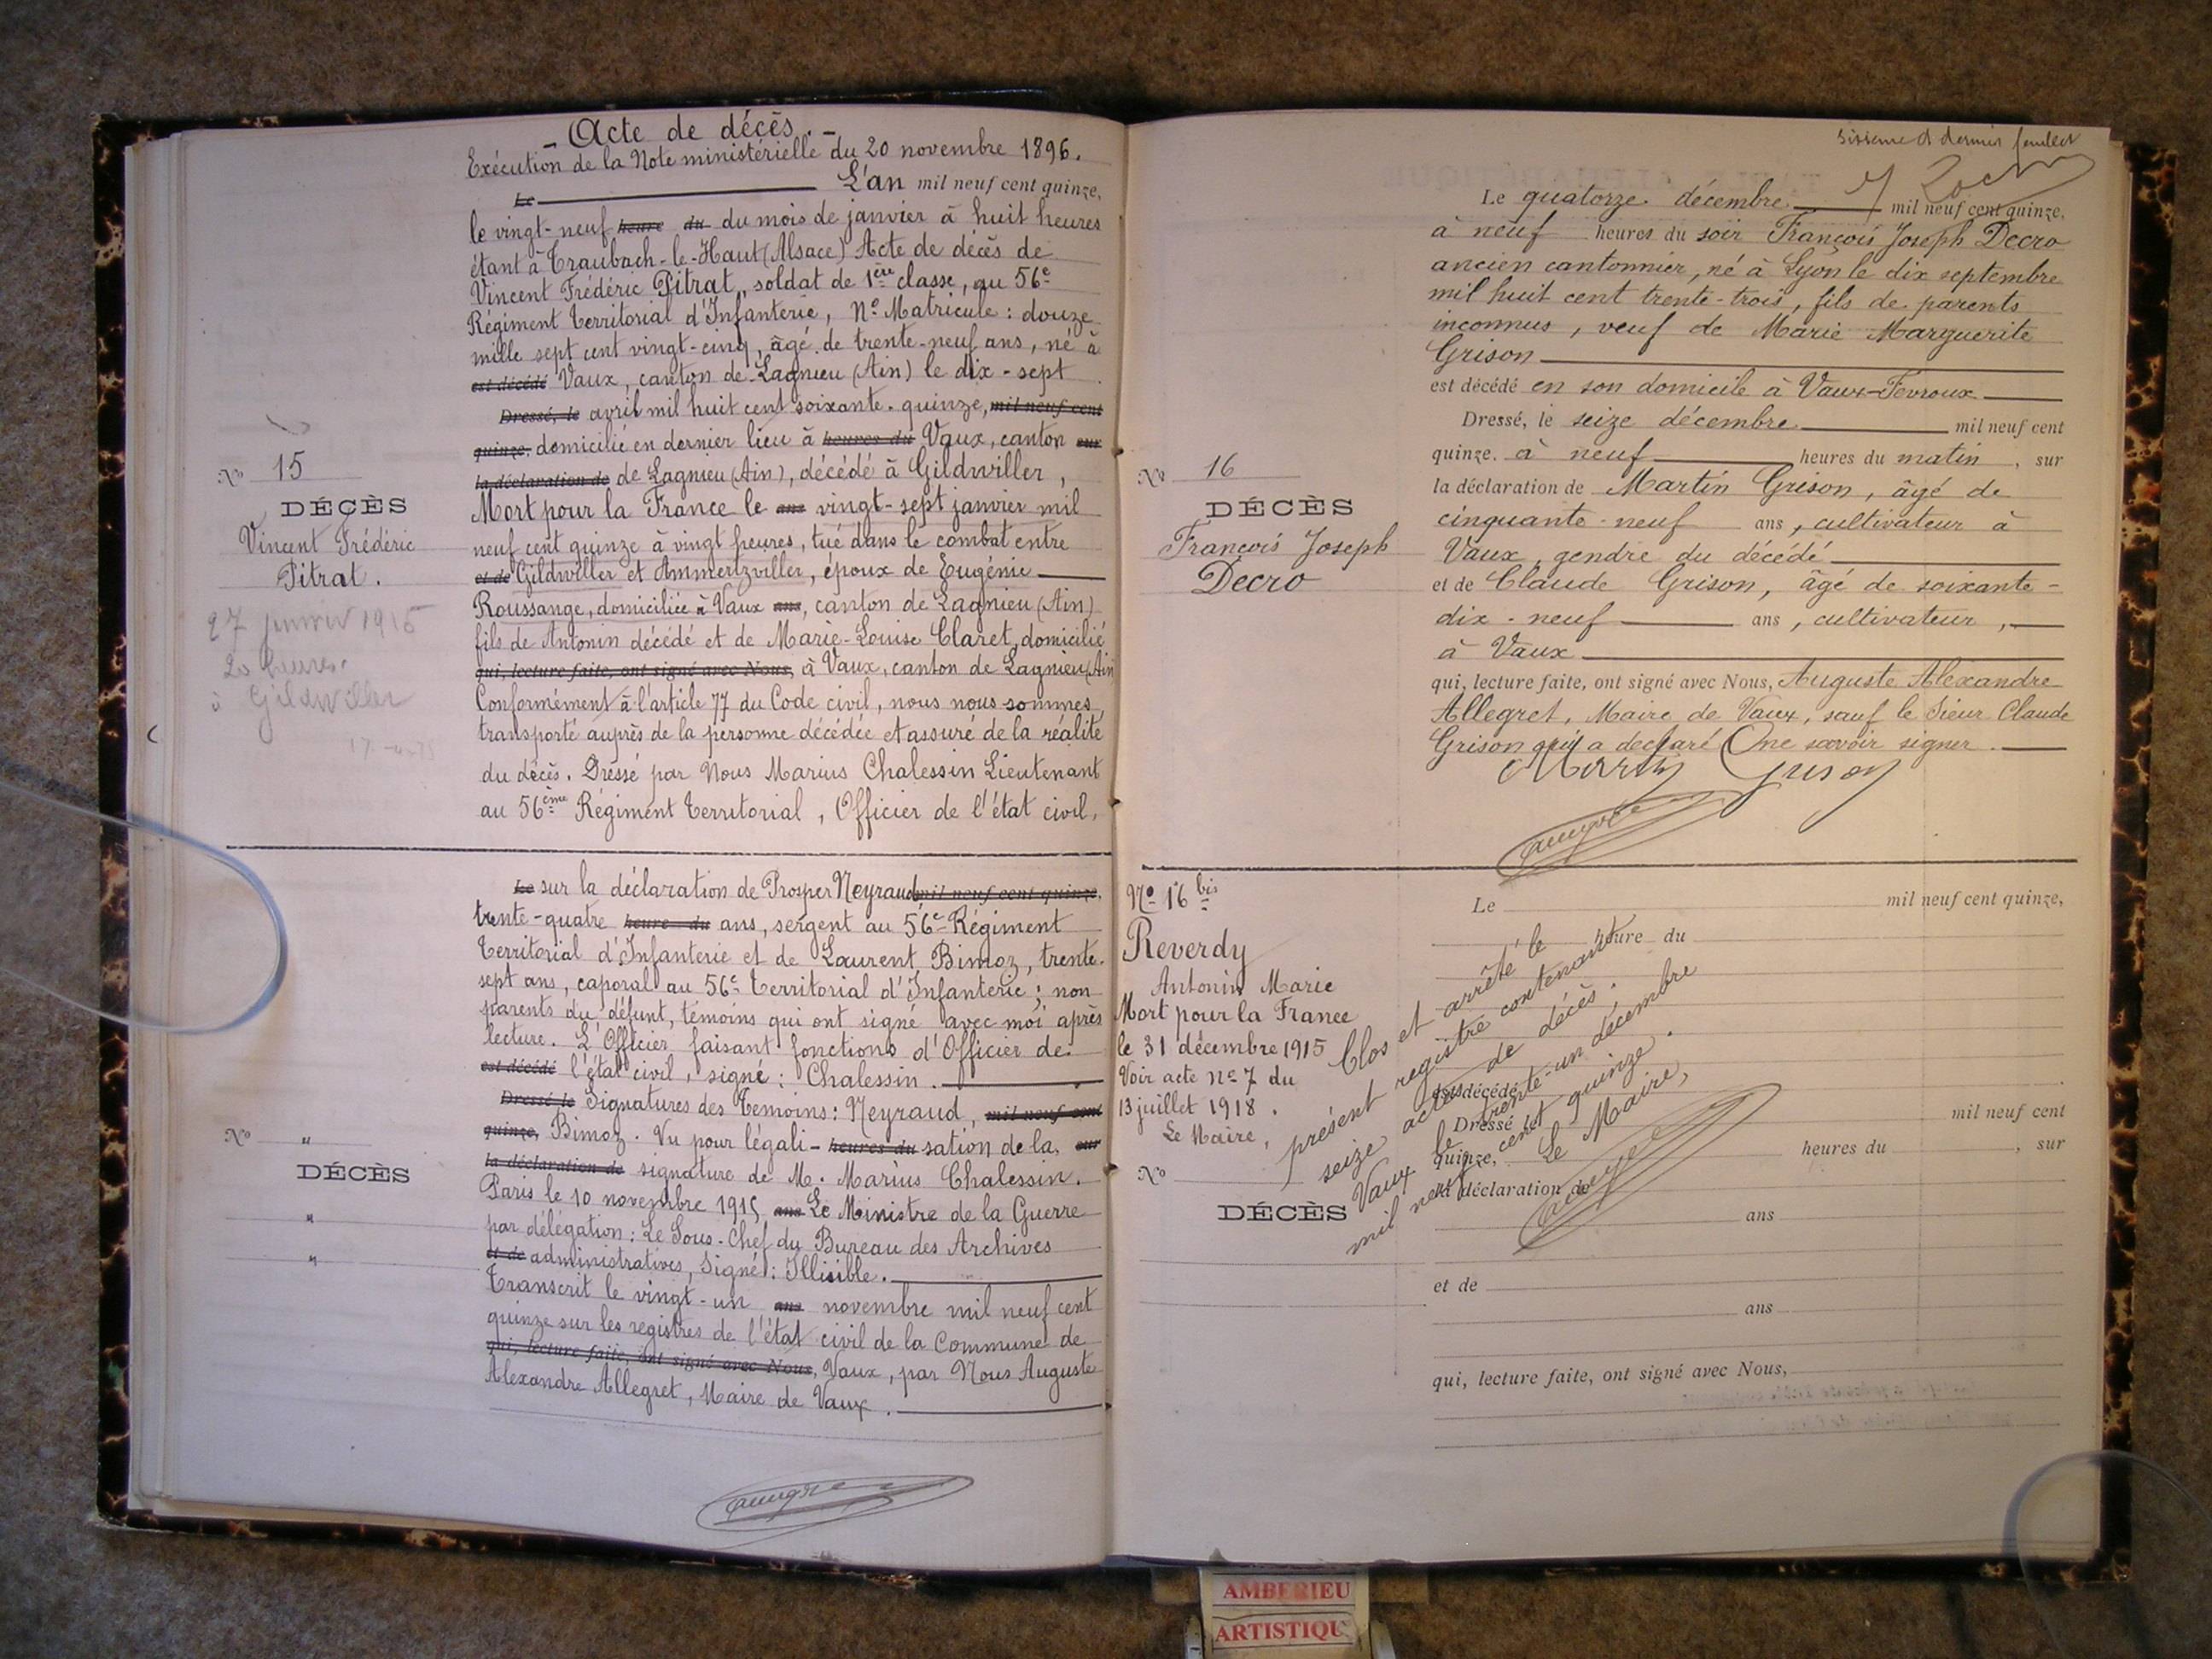 - Acte de décès. -
Exécution de la Note ministérielle du 20 novembre 1896.
Le L'an mil neuf cent quinze,
le vingt-neuf heure du du mois de janvier à huit heures
étant à Traubach-le-Haut (Alsace) Acte de décès de
Vincent Frédéric Pitrat, soldat de 1ère classe, au 56e
Régiment territorial d'Infanterie, No Matricule : douze
mille sept cent vingt-cinq, âgé de trente-neuf ans, né à
est décédé Vaux, canton de Lagnieu (Ain) le dix-sept
Dressé, le avril mil huit cent soixante-quinze, mil neuf cent
quinze, domicilié en dernier lieu à heures du Vaux, canton sur
la déclaration de de Lagnieu (Ain), décédé à Gildwiller,
Mort pour la France le ans vingt-sept janvier mil
neuf cent quinze à vingt heures, tué dans le combat entre
et de Gildwiller et Ammertzviller, époux de Eugénie
Roussange, domiciliée à Vaux ans, canton de Lagnieu (Ain)
fils de Antonin décédé et de Marie-Louise Claret, domicilié
qui, lecture faite, ont signé avec Nous, à Vaux, canton de Lagnieu (Ain
Conformément à l'article 77 du Code civil, nous nous sommes
transporté auprès de la personne décédée et assuré de la réalité
du décès. Dressé par Nous Marius Chalessin Lieutenant
au 56ème Régiment territorial, Officier de l'état civil,
No 15
DÉCÈS
Vincent Frédéric
Pitrat.
27 janvier 1915
20 heures
à Gildwiller
Le sur la déclaration de Prosper Neyraud mil neuf cent quinze,
trente-quatre heure du ans, sergent au 56e Régiment
territorial d'Infanterie et de Laurent Bimoz, trente-
sept ans, caporal au 56e territorial d'Infanterie ; non
parents du défunt, témoins qui ont signé avec moi après
lecture. L'Officier faisant fonctions d'Officier de
est décédé l'état civil, signé : Chalessin.
Dressé, le Signatures des Temoins : Neyraud, mil neuf cent
quinze, Bimoz. Vu pour légali- heures du sation de la, sur
la déclaration de signature de M. Marius Chalessin.
Paris le 10 novembre 1915 ans Le Ministre de la Guerre
par délégation : Le Sous-Chef du Bureau des Archives
et de administratives, Signé : Illisible.
Transcrit le vingt-un ans novembre mil neuf cent
quinze sur les registres de l'état civil de la Commune de
qui, lecture faite, ont signé avec Nous, Vaux, par Nous Auguste
Alexandre Allegret, Maire de Vaux.
No "
DÉCÈS
"
"
Sixième et dernier feuillet
Le quatorze décembre mil neuf cent quinze,
à neuf heures du soir François Joseph Decro
ancien cantonnier, né à Lyon le dix septembre
mil huit cent trente-trois, fils de parents
inconnus, veuf de Marie Marguerite
Grison
est décédé en son domicile à Vaux-Fevroux
Dressé, le seize décembre mil neuf cent
quinze, à neuf heures du matin, sur
la déclaration de Martin Grison, âgé de
cinquante-neuf ans, cultivateur à
Vaux, gendre du décédé
et de Claude Grison, âgé de soixante-
dix-neuf ans, cultivateur,
à Vaux
qui, lecture faite, ont signé avec Nous, Auguste Alexandre
Allegret, Maire de Vaux, sauf le Sieur Claude
Grison qui a déclaré ne savoir signer.
Martin Grison
No 16
DÉCÈS
François Joseph
Decro
No 16 bis
Reverdy
Antonin Marie
Mort pour la France
le 31 décembre 1915
Voir acte No 7 du
13 juillet 1918.
Le Maire,
No
DÉCÈS
Clos et arrêté le
présent registre contenant
seize actes de décès.
Vaux le trente-un décembre
mil neuf cent quinze.
Le Maire,
Le mil neuf cent quinze,
heure du
est décédé
Dressé, le mil neuf cent
quinze, heures du , sur
la déclaration de
ans
et de
ans
qui, lecture faite, ont signé avec Nous,
AMBERIEU
ARTISTIQU